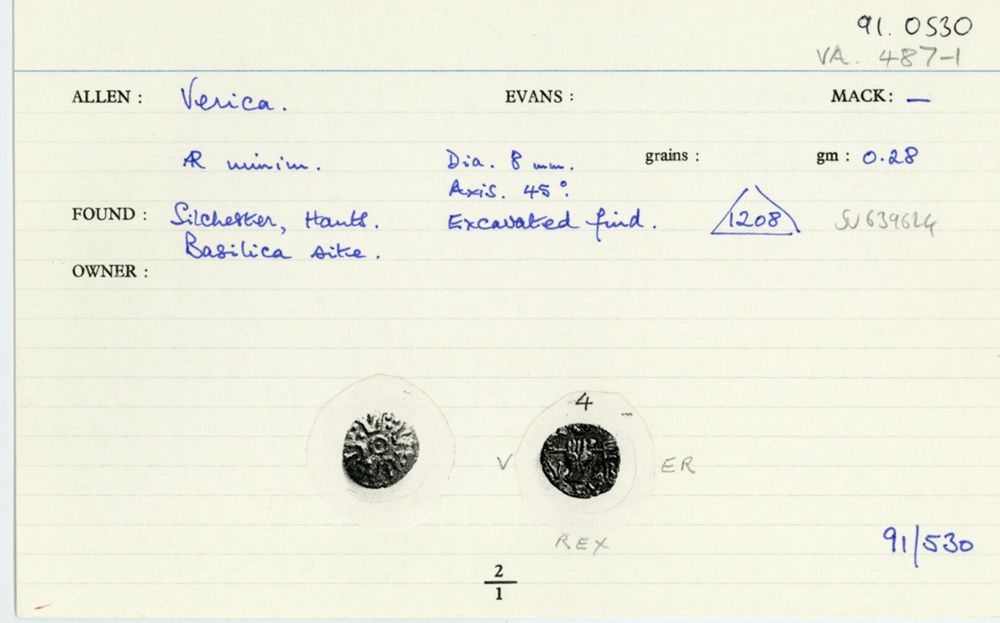 91.0530
VA. 487-1
ALLEN : Verica. EVANS : MACK: —
AR minim. Dia. 8 mm. grains : gm : 0.28
Axis. 45°.
FOUND : Silchester, Hants. Excavated find. 1208 SU639624
Basilica site.
OWNER :
4
V ER
REX
91/530
2
1